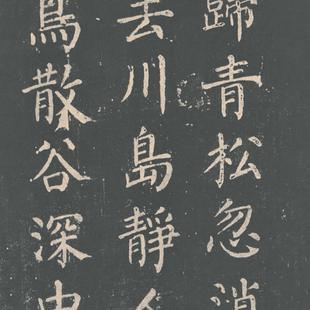 歸青松忽消
去川島靜人
鳥散谷深